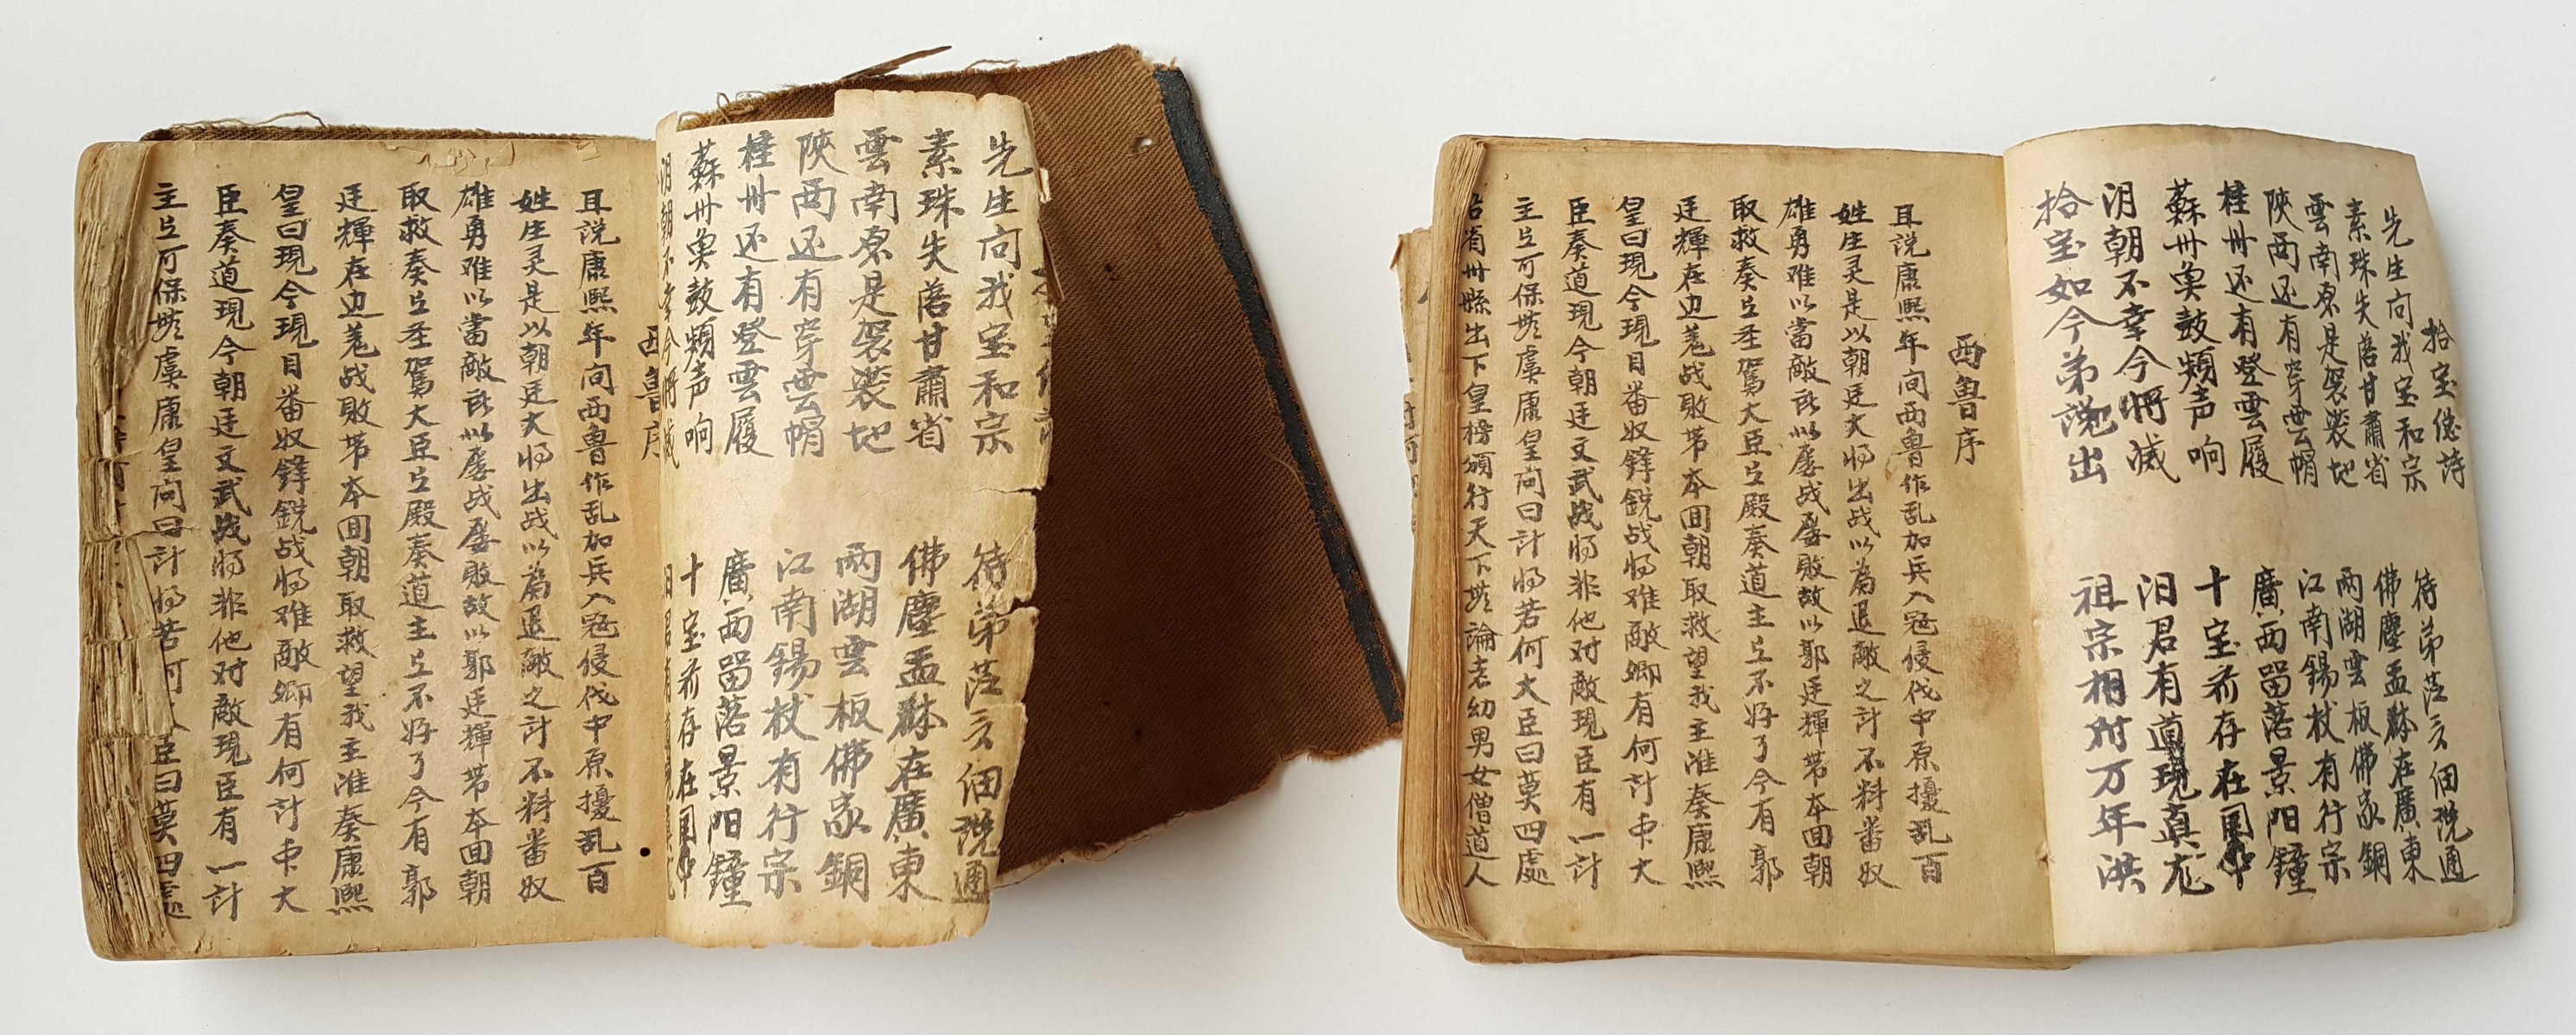 先生问我宝和宗
待弟莅言個説通
素珠失落甘肅省
佛塵盂鉢在廣東
雲南原是袈裟地
兩湖雲板佛家銅
陝西还有穿雲帽
江南錫杖有行宗
桂州还有登雲履
廣西留落景阳鐘
蘇州魚鼓頻声响
十宝齐存在國中
汨朝不幸今将滅
西魯序
且説康熙年间西魯作乱加兵入冠侵伐中原擾乱百
姓生灵是以朝廷大将出战以為退敵之計不料番奴
雄勇难以當敵所以屡战屡敗故以郭廷輝带本回朝
取救奏上圣駕大臣上殿奏道主上不好了今有郭
廷輝在边羗战敗带本回朝取救望我主准奏康熙
皇曰現今現目番奴鋒鋭战将难敵卿有何計策大
臣奏道現今朝廷文武战将非他对敵現臣有一計
主上可保無虞康皇问曰計将若何大臣曰莫四處
拾宝总詩
先生问我宝和宗
待弟莅言個説通
素珠失落甘肅省
佛塵盂鉢在廣東
雲南原是袈裟地
兩湖雲板佛家銅
陝西还有穿雲帽
江南錫杖有行宗
桂州还有登雲履
廣西留落景阳鐘
蘇州魚鼓頻声响
十宝齐存在國中
汨朝不幸今将滅
汨君有道現真龙
拾宝如今弟説出
祖宗相对万年洪
西魯序
且説康熙年间西魯作乱加兵入冠侵伐中原擾乱百
姓生灵是以朝廷大将出战以為退敵之計不料番奴
雄勇难以當敵所以屡战屡敗故以郭廷輝带本回朝
取救奏上圣駕大臣上殿奏道主上不好了今有郭
廷輝在边羗战敗带本回朝取救望我主准奏康熙
皇曰現今現目番奴鋒鋭战将难敵卿有何計策大
臣奏道現今朝廷文武战将非他对敵現臣有一計
主上可保無虞康皇问曰計将若何大臣曰莫四處
省州縣出下皇榜頒行天下無論老幼男女僧道人